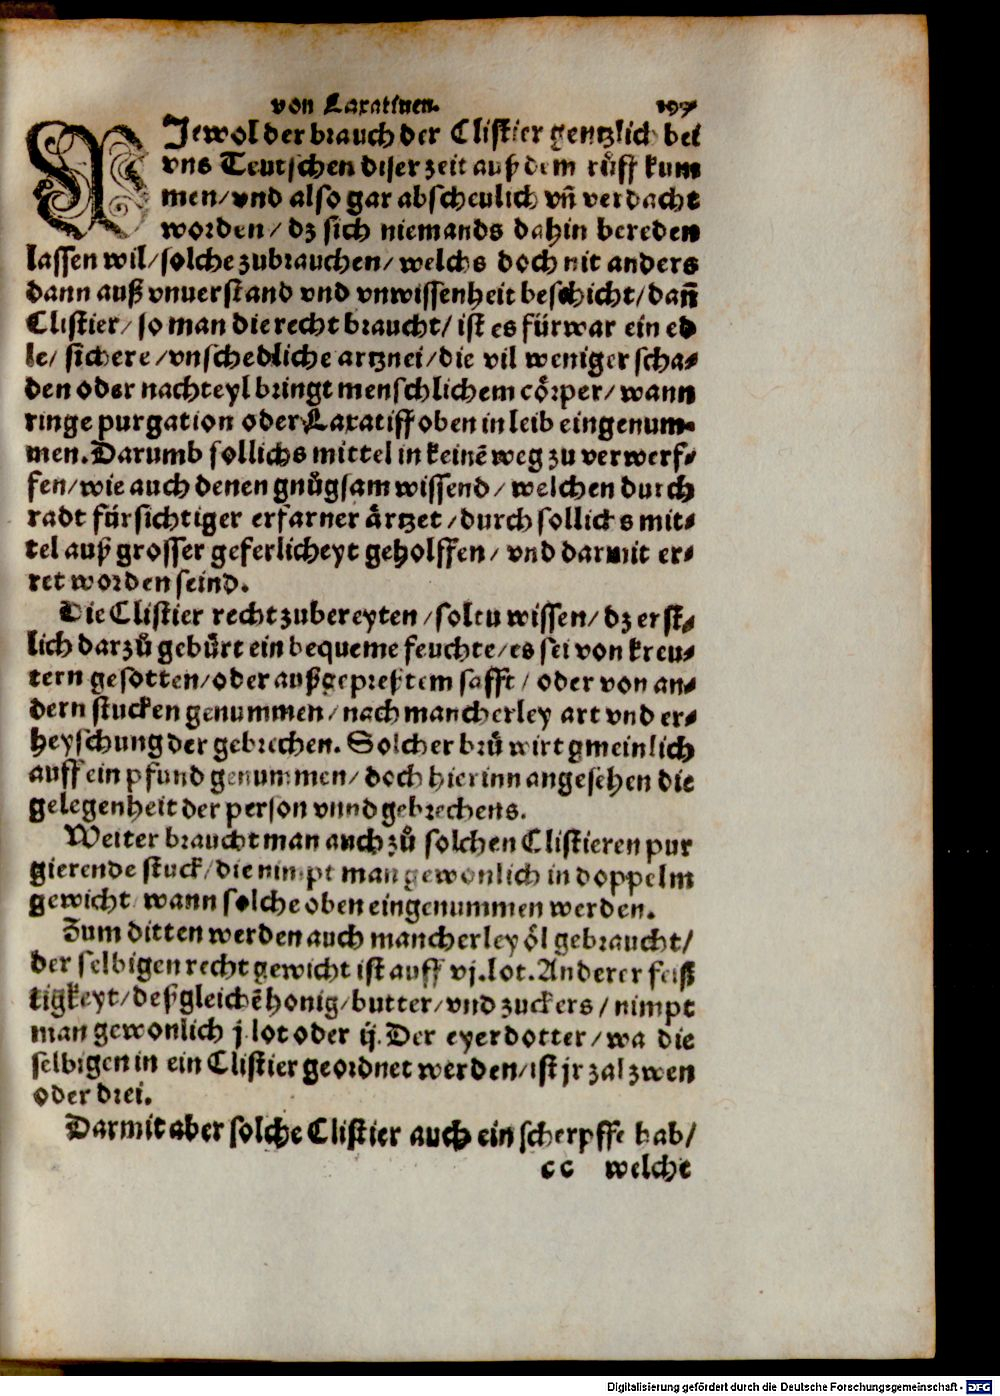 von Laxatiuen. 197
WJewol der brauch der Clistier gentzlich bei
vns Teutschen diser zeit auß dem růff kum
men/vnd also gar abscheulich vñ verdacht
worden/dz sich niemands dahin bereden
lassen wil/solche zubrauchen/welchs doch nit anders
dann auß vnuerstand vnd vnwissenheit beschicht/dañ
Clistier/so man die recht braucht/ist es fürwar ein ed
le/sichere/vnschedliche artznei/die vil weniger scha⸗
den oder nachteyl bringt menschlichem cörper/wann
ringe purgation oder Laxatiff oben in leib eingenum⸗
men. Darumb sollichs mittel in keinē weg zu verwerf⸗
fen/wie auch denen gnůgsam wissend/welchen durch
radt fürsichtiger erfarner ärtzet/durch sollichs mit⸗
tel auß grosser geferlicheyt geholffen/vnd darmit er⸗
ret worden seind.
Die Clistier recht zubereyten/soltu wissen/dz erst⸗
lich darzů gebürt ein bequeme feuchte/es sei von kreu⸗
tern gesotten/oder außgepreßtem safft/oder von an⸗
dern stucken genummen/nach mancherley art vnd er⸗
heyschung der gebrechen. Solcher brů wirt gmeinlich
auff ein pfund genummen/doch hierinn angesehen die
gelegenheit der person vnnd gebrechens.
Weiter braucht man auch zů solchen Clistieren pur
gierende stuck/die nimpt man gewonlich in doppelm
gewicht wann solche oben eingenummen werden.
Zum ditten werden auch mancherley öl gebraucht/
der selbigen recht gewicht ist auff vj. lot. Anderer feiß
tigkeyt/deßgleichē honig/butter/vnd zuckers/nimpt
man gewonlich j lot oder ij. Der eyerdotter/wa die
selbigen in ein Clistier geordnet werden/ist jr zal zwen
oder drei.
Darmit aber solche Clistier auch ein scherpffe hab/
cc welche
Digitalisierung gefördert durch die Deutsche Forschungsgemeinschaft - DFG